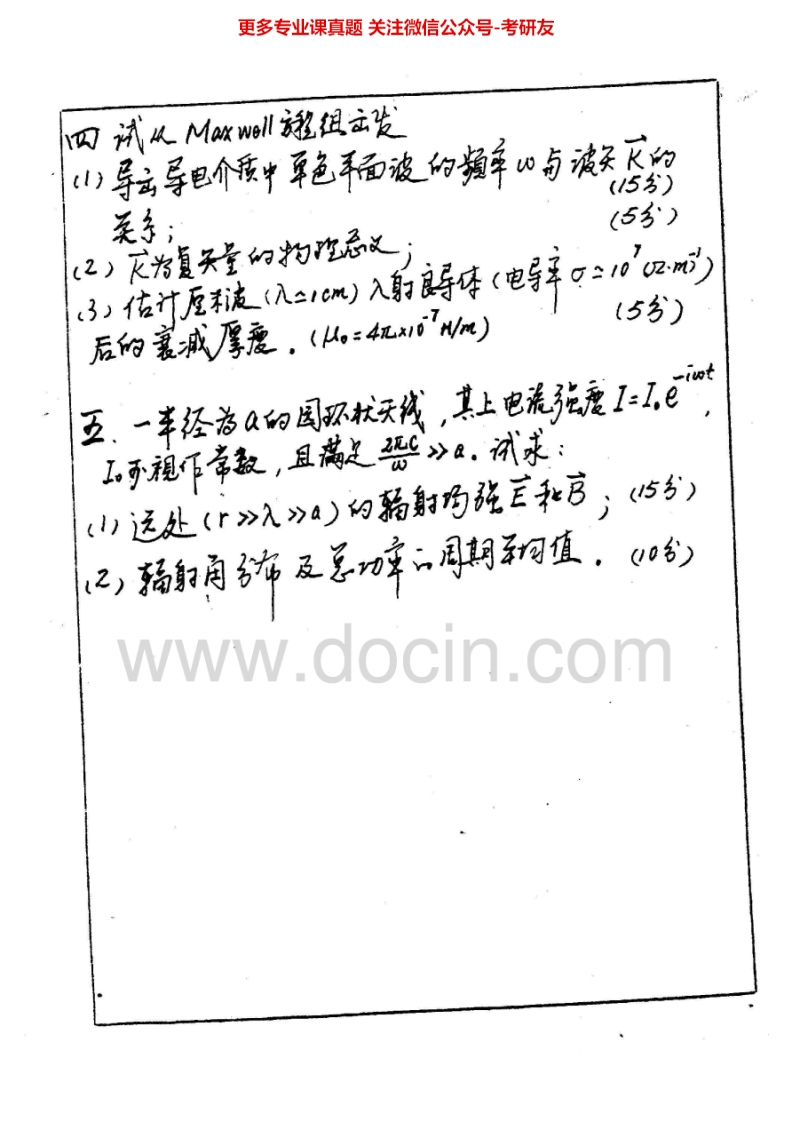 更多专业课真题 关注微信公众号-考研友
四 试从Maxwell方程组出发
(1) 导出导电介质中单色平面波的频率ω与波矢K⃗的
(15分)
关系;
(5分)
(2) K⃗为复矢量的物理意义;
(3) 估计厘米波(λ≃1cm)入射良导体(电导率σ≃10⁷(Ω·m)⁻¹)
后的衰减厚度. (μ₀=4π×10⁻⁷H/m) (5分)
五. 一半径为a的圆环状天线, 其上电流强度I=I₀e^{-iωt},
I₀可视作常数, 且满足 2πc/ω >>a. 试求:
(1) 远处(r>>λ>>a)的辐射场强E⃗和B⃗; (15分)
(2) 辐射角分布及总功率的周期平均值. (10分)
www.docin.com